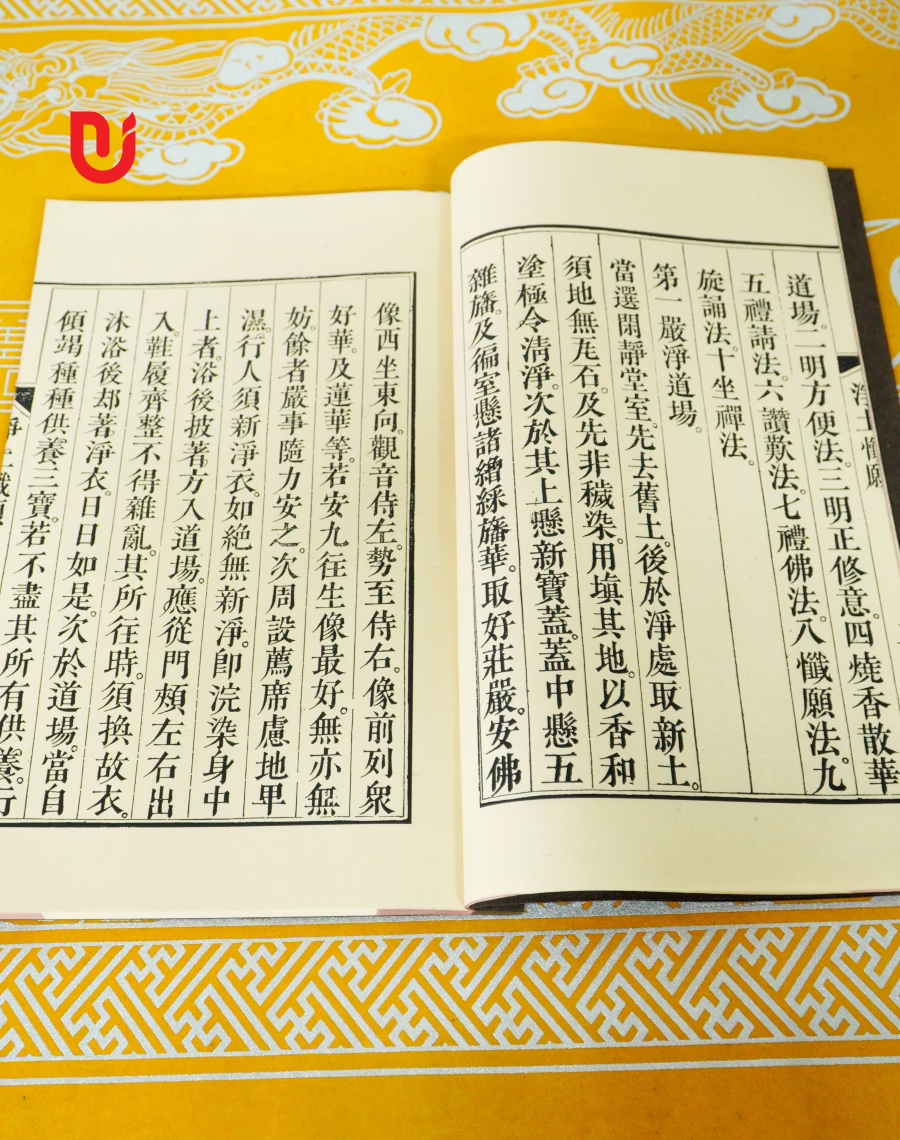 淨土懺願
道場。二明方便法。三明正修意。四燒香散華
五禮請法。六讚歎法。七禮佛法。八懺願法。九
旋誦法。十坐禪法。
第一嚴淨道場。
當選閑靜堂室。先去舊土。後於淨處取新土。
須地無瓦石。及先非穢染。用塡其地。以香和
塗極令淸淨。次於其上懸新寶蓋。蓋中懸五
雜旛。及徧室懸諸繒綵旛華。取好莊嚴。安佛
像西坐東向。觀音侍左。勢至侍右。像前列衆
好華。及蓮華等。若安九往生像最好。無亦無
妨。餘者嚴事隨力安之。次周設薦席。慮地卑
濕。行人須新淨衣。如絕無新淨。卽浣染身中
上者。浴後披著。方入道場。應從門頰左右出
入。鞋履齊整不得雜亂。其所往時。須換故衣。
沐浴後却著淨衣。日日如是。次於道場。當自
傾竭種種供養三寶。若不盡其所有供養。行